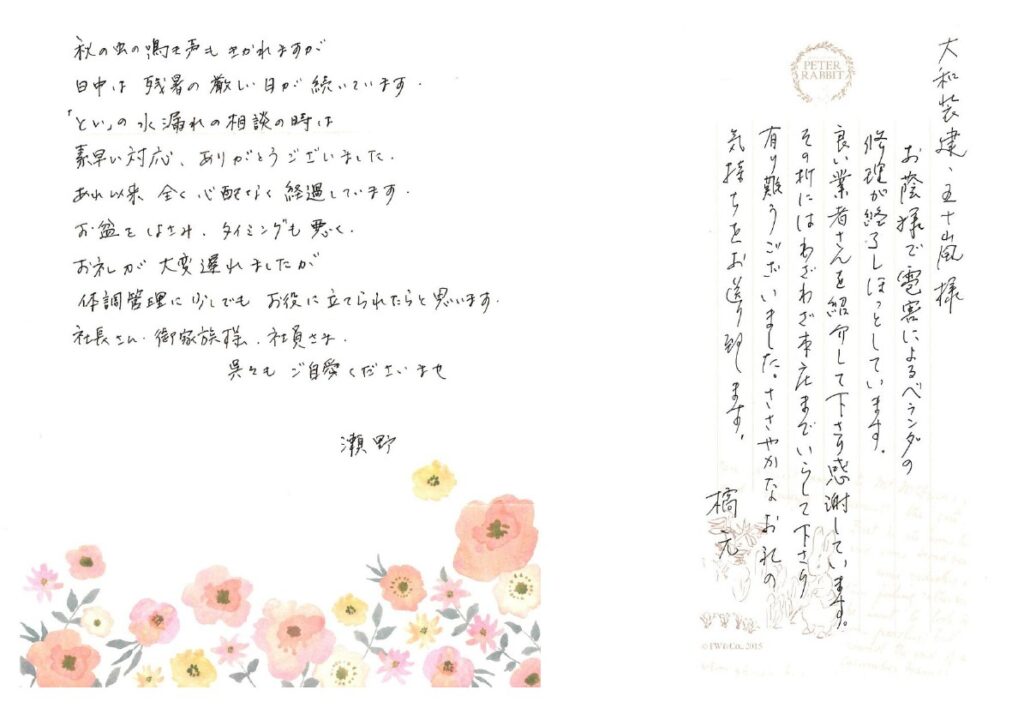 秋の虫の鳴く声も きかれますが
日中は 残暑の厳しい日が 続いています.
「とい」の 水漏れの相談の時は
素早い対応、ありがとうございました.
あれ以来 全く心配なく 経過しています.
お盆をはさみ、タイミングも悪く.
お礼が 大変遅れましたが
体調管理に少しでも お役に立てられたらと思います.
社長さん.御家族様.社員さま.
呉々も ご自愛くださいませ
瀬野
PETER
RABBIT
大和装建、五十嵐様
お蔭様で電害によるベランダの
修理が終了しほっとしています。
良い業者さんを紹介して下さり感謝しています。
その折にはわざわざ本庄までいらして下さり
有り難うございました。ささやかなお礼の
気持ちをお送り致します。
橋元
© FW&Co., 2015